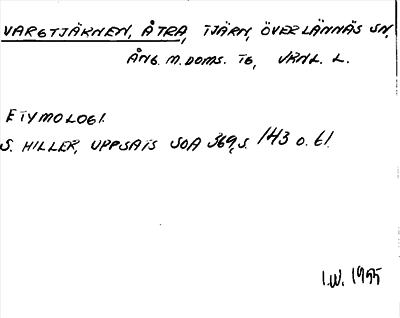 VARGTJÄRNEN, ÅTRA, TJÄRN, ÖVERLÄNNÄS SN,
ÅNG. M. DOMS. TG, VRNL. L.
ETYMOLOGI.
S. HILLER, UPPSATS SOA 369, S. 143 O. 61.
I.W. 1955